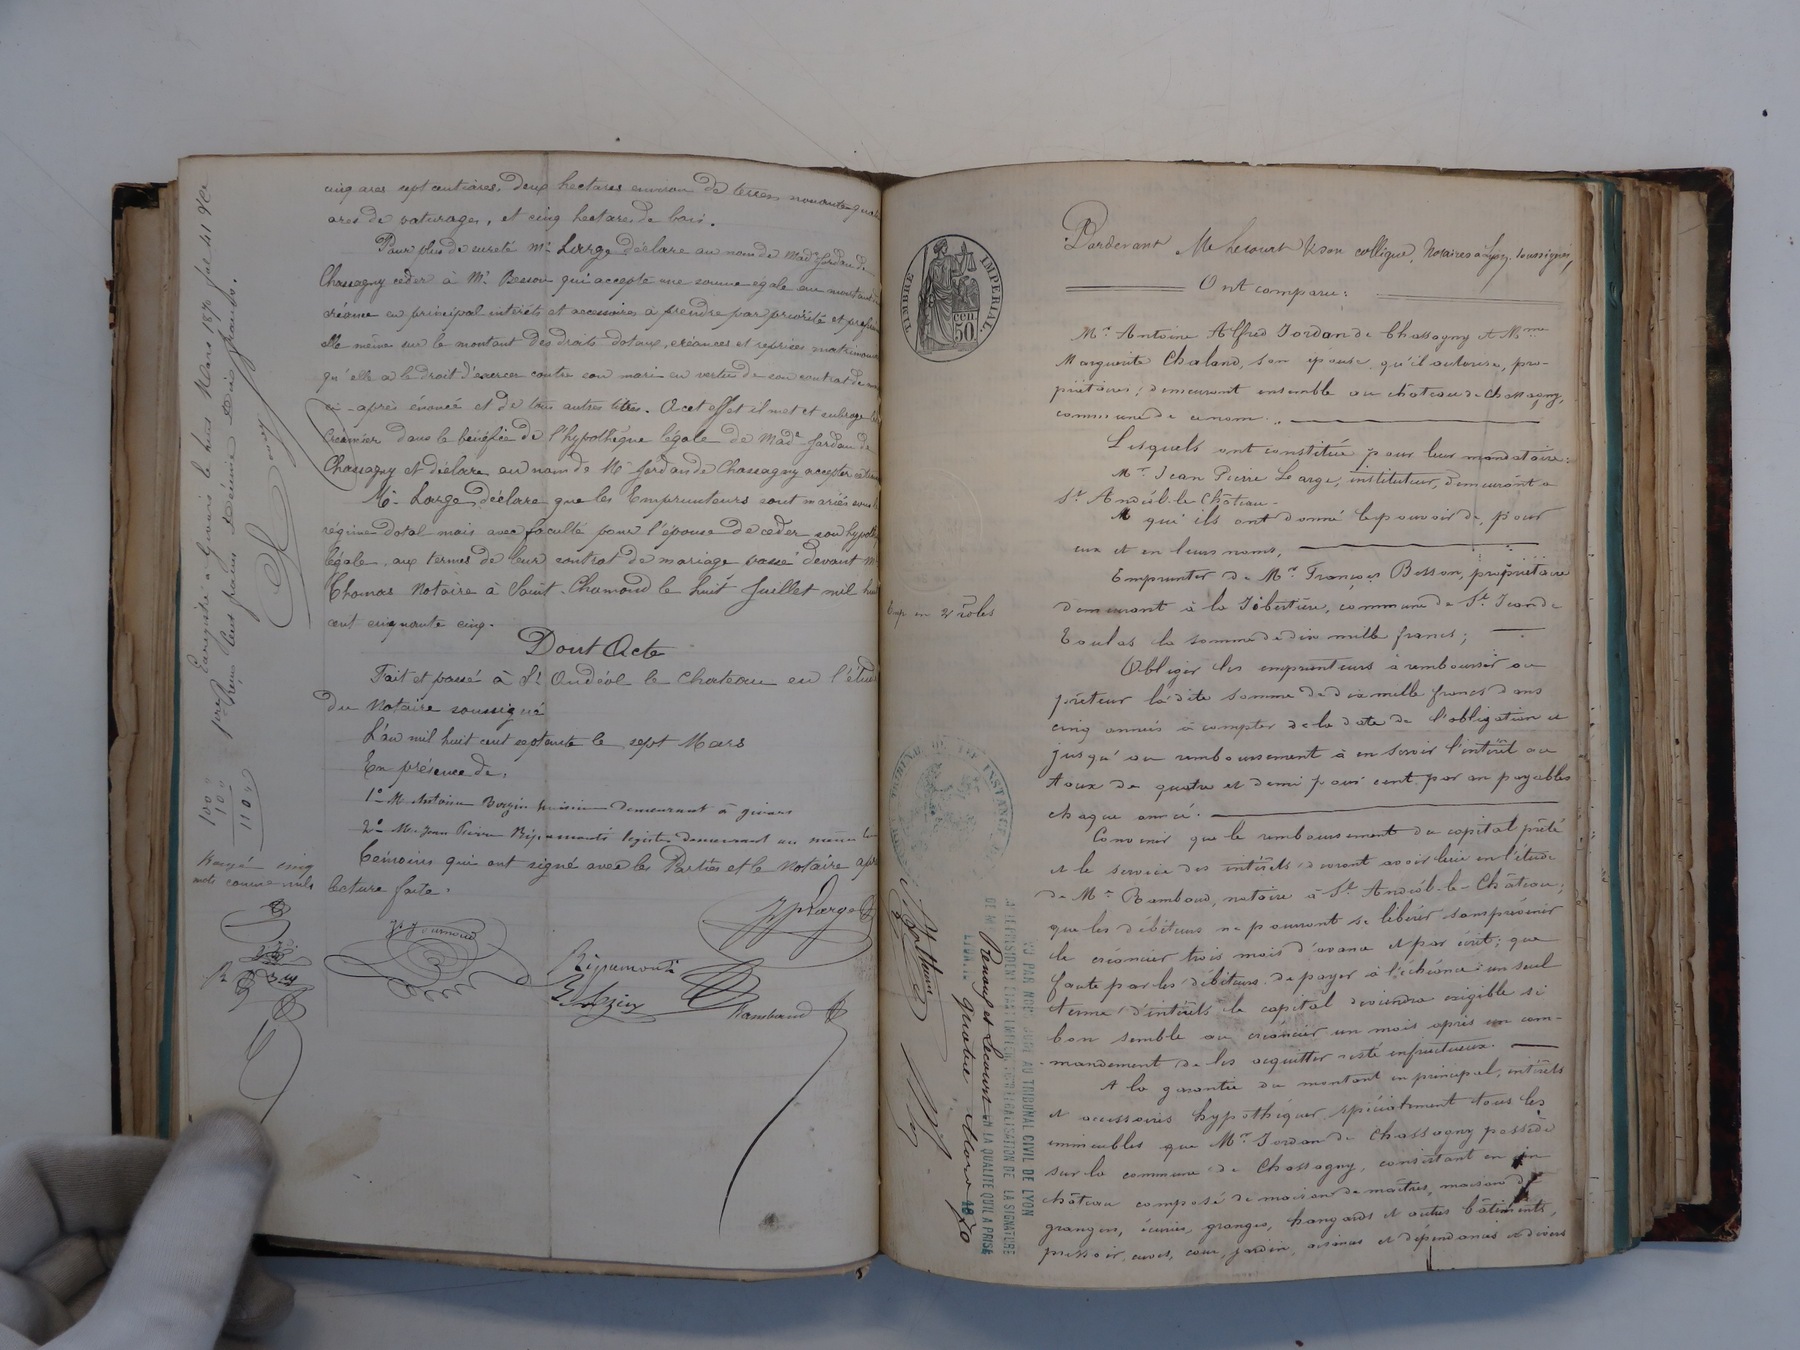 cinq ares sept centiares, deux hectares environ de terres nonante quatre
ares de paturages, et cinq hectares de bois.
Pour plus de sureté Mr. Large déclare au nom de Made Jordan de
Chassagny céder à Mr. Besson qui accepte une somme égale au montant
créance en principal intérêts et accessoires à prendre par priorité et
elle même sur le montant des droits dotaux, créances et reprises
qu'elle a le droit d'exercer contre son mari en vertu de son contrat de
ci-après énoncé et de tous autres titres. A cet effet il met et subroge
Créancier dans le bénéfice de l'hypothèque légale de Made Jordan de
Chassagny et déclare au nom de Mr Jordan de Chassagny accepter
Mr. Large déclare que les Emprunteurs sont mariés sous le
régime dotal mais avec faculté pour l'épouse de céder son
légale, aux termes de leur contrat de mariage passé devant Me
Thomas Notaire à Saint-Chamond le huit Juillet mil huit
cent cinquante cinq.
Dont Acte
Fait et passé à St Andéol le Chateau en l'étude
du Notaire soussigné
L'an mil huit cent septante le sept Mars
En présence de,
1o M. Antoine demeurant à givors
2o Mr. Jean Pierre Bijamonti demeurant au même lieu
témoins qui ont signé avec les Parties et le Notaire après
lecture faite.
JP Large
Bijamonti
Rambaud
Enregistré à Givors le huit Mars 1870 fol 41
Reçu cent francs décime dix francs.
100 "
10 "
110 "
Rayé cinq
mots comme nuls
TIMBRE IMPÉRIAL.
50 cen
Pardevant Me Lecourt & son collègue, Notaires à Lyon, soussignés,
Ont comparu:
Mr. Antoine Alfred Jordan de Chassagny et Mme
Marguerite Chaland, son épouse qu'il autorise, pro-
priétaires, demeurant ensemble au château de Chassagny,
commune de ce nom.
Lesquels ont constitué pour leur mandataire:
Mr. Jean Pierre Large, instituteur, demeurant à
St. Andéol-le-Château.
A qui ils ont donné le pouvoir de, pour
eux et en leurs noms,
Emprunter de Mr. François Besson, propriétaire
demeurant à la Jobertière, commune de St. Jean de
Toulas la somme de dix mille francs;
Obliger les emprunteurs à rembourser au
prêteur la dite somme de dix mille francs dans
cinq années à compter de la date de l'obligation et
jusqu'au remboursement à en servir l'intérêt au
taux de quatre et demi pour cent par an payables
chaque année.
Convenir que le remboursement du capital prêté
et le service des intérêts devront avoir lieu en l'étude
de Me. Rambaud, notaire à St. Andéol-le-Château;
que les débiteurs ne pourront se libérer sans prévenir
le créancier trois mois d'avance et par écrit; que
faute par les débiteurs de payer à l'échéance un seul
terme d'intérêts le capital deviendra exigible si
bon semble au créancier un mois après un com-
mandement de les acquitter resté infructueux.
A la garantie du montant en principal, intérêts
et accessoires hypothéquer spécialement tous les
immeubles que Mr. Jordan de Chassagny possède
sur la commune de Chassagny, consistant en un
château composé de maison de maîtres, maison de
grangers, écuries, granges, hangards et autres bâtiments,
pressoir, cuves, cour, jardin, aisines et dépendances et divers
Exp. en 2 rôles
VU PAR NOUS JUGE AU TRIBUNAL CIVIL DE LYON
POUR LÉGALISATION DE LA SIGNATURE
DE Me Penoux et Lecourt EN LA QUALITÉ QU'IL A PRISE
LYON, LE quatre Mars 1870